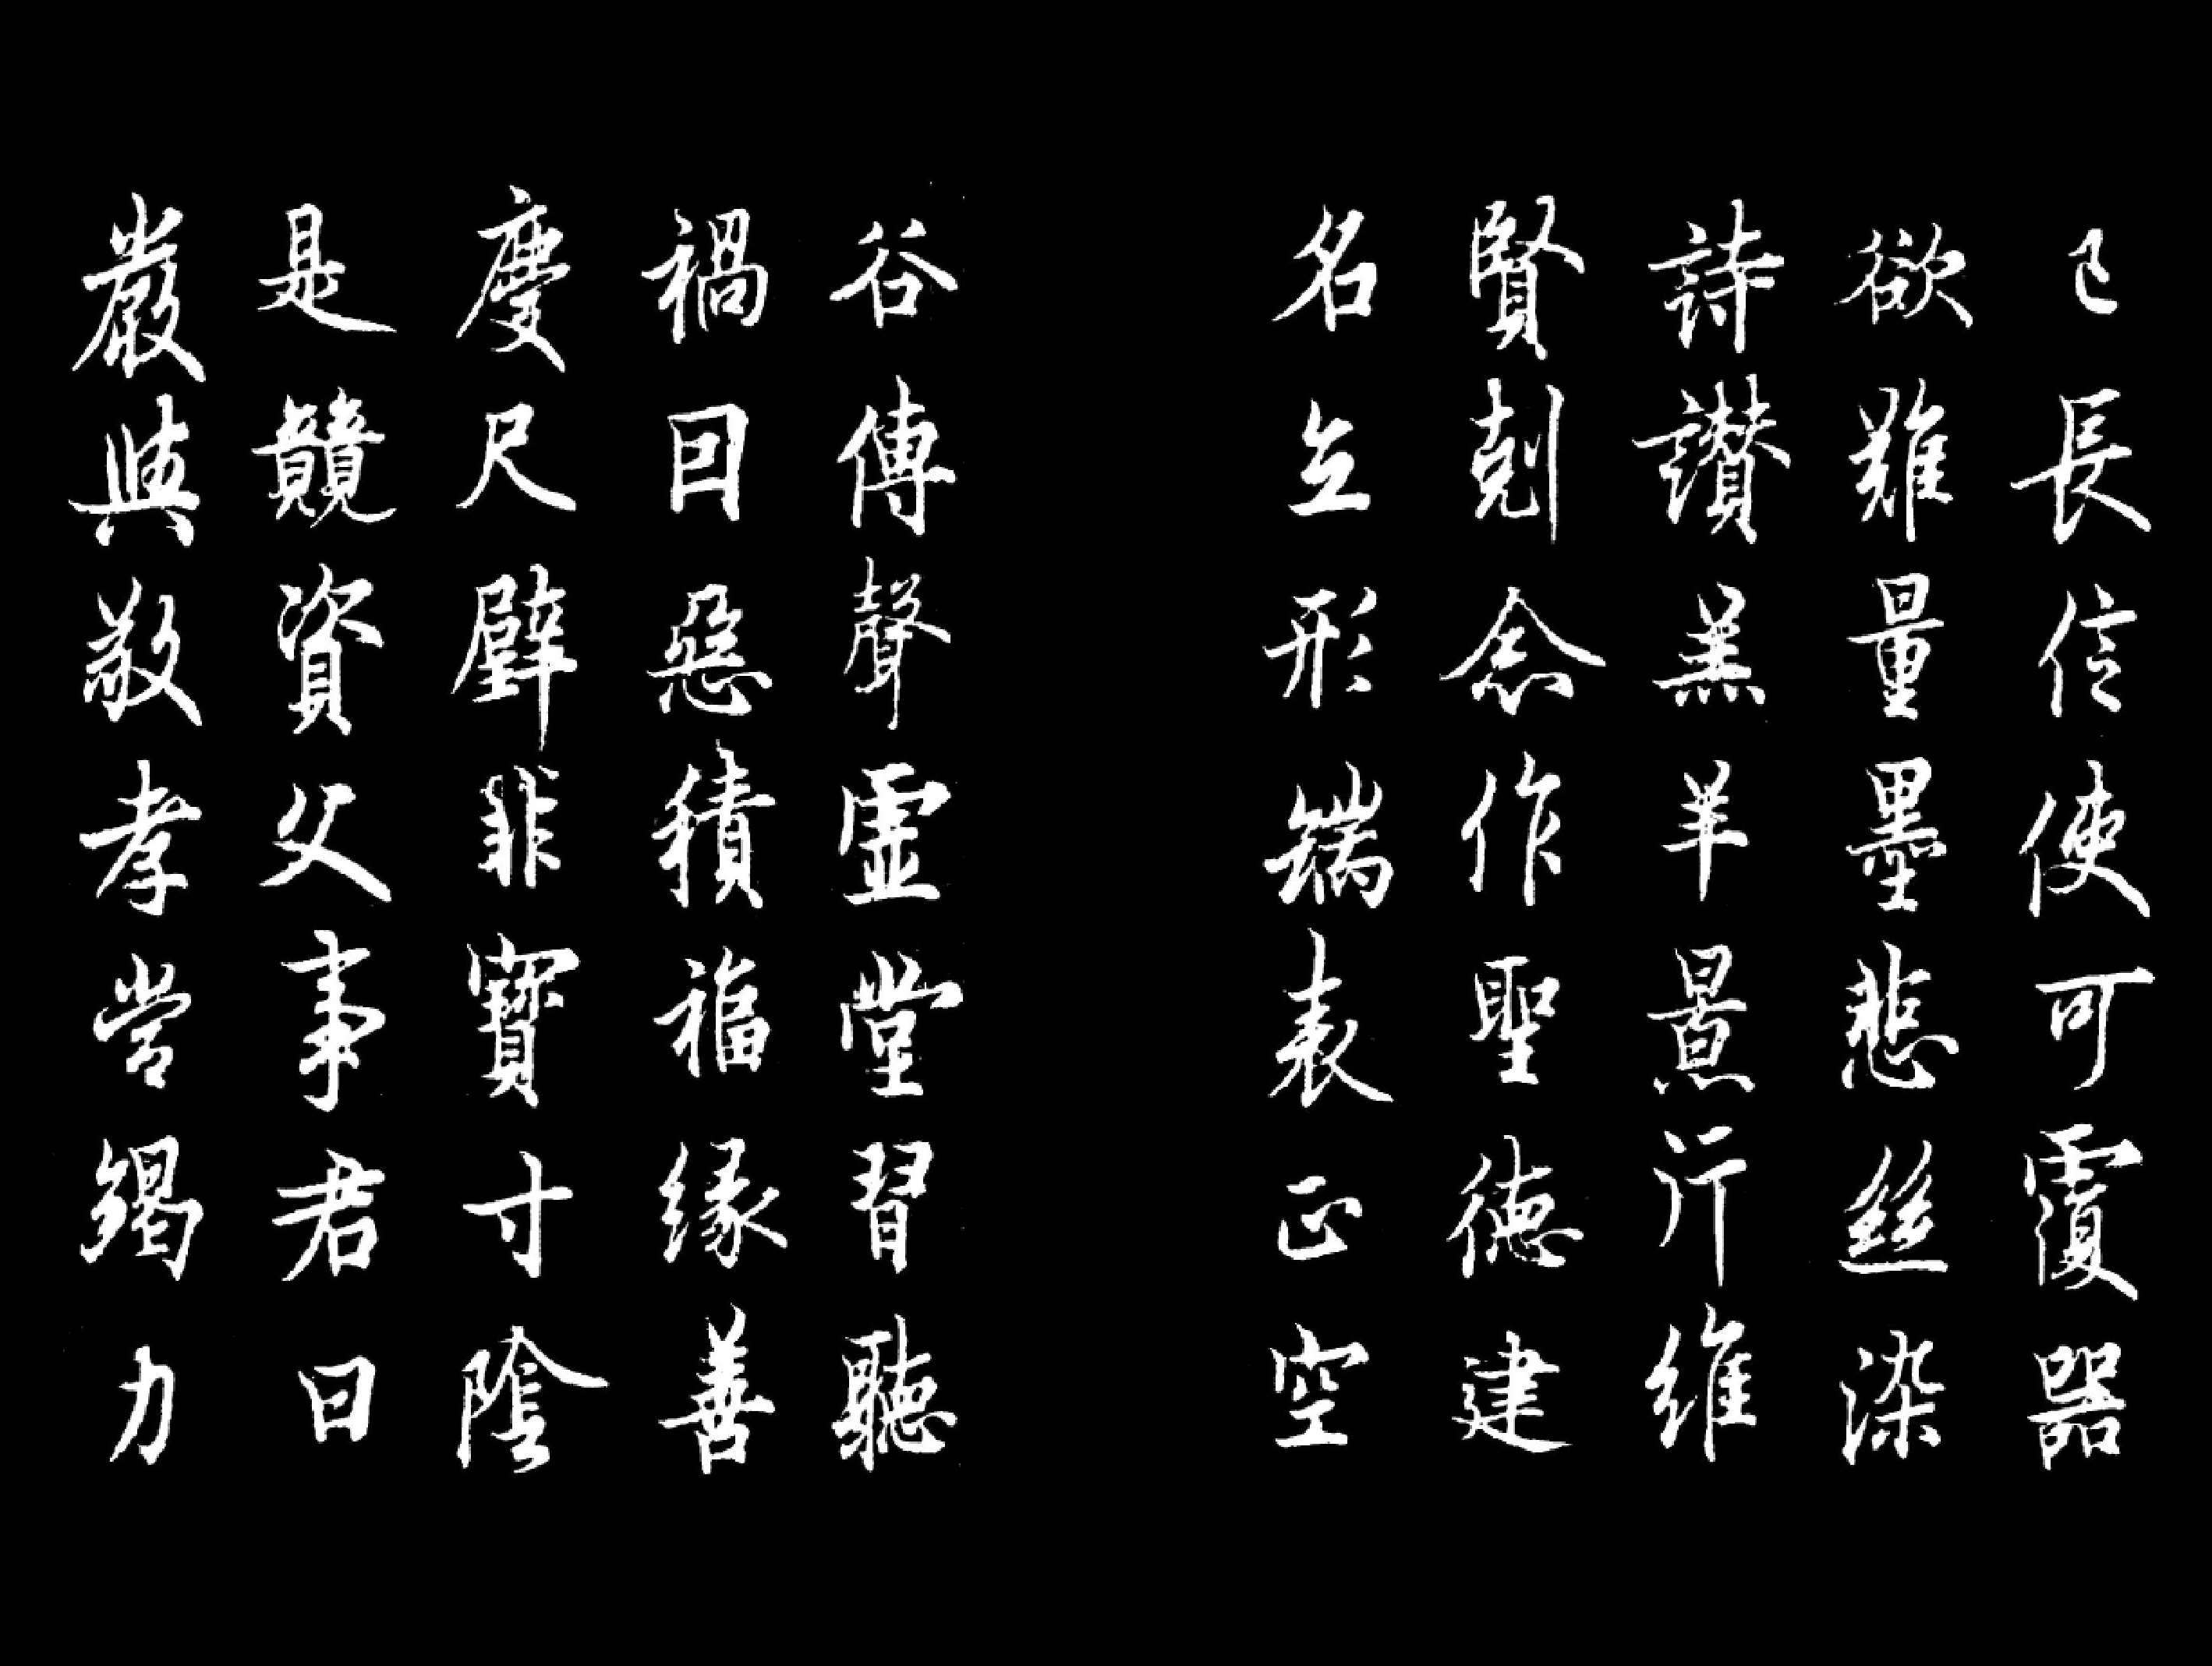 己長信使可覆器
欲難量墨悲絲染
詩讚羔羊景行維
賢剋念作聖德建
名立形端表正空
谷傳聲虛堂習聽
禍因惡積福緣善
慶尺璧非寶寸陰
是競資父事君曰
嚴與敬孝當竭力